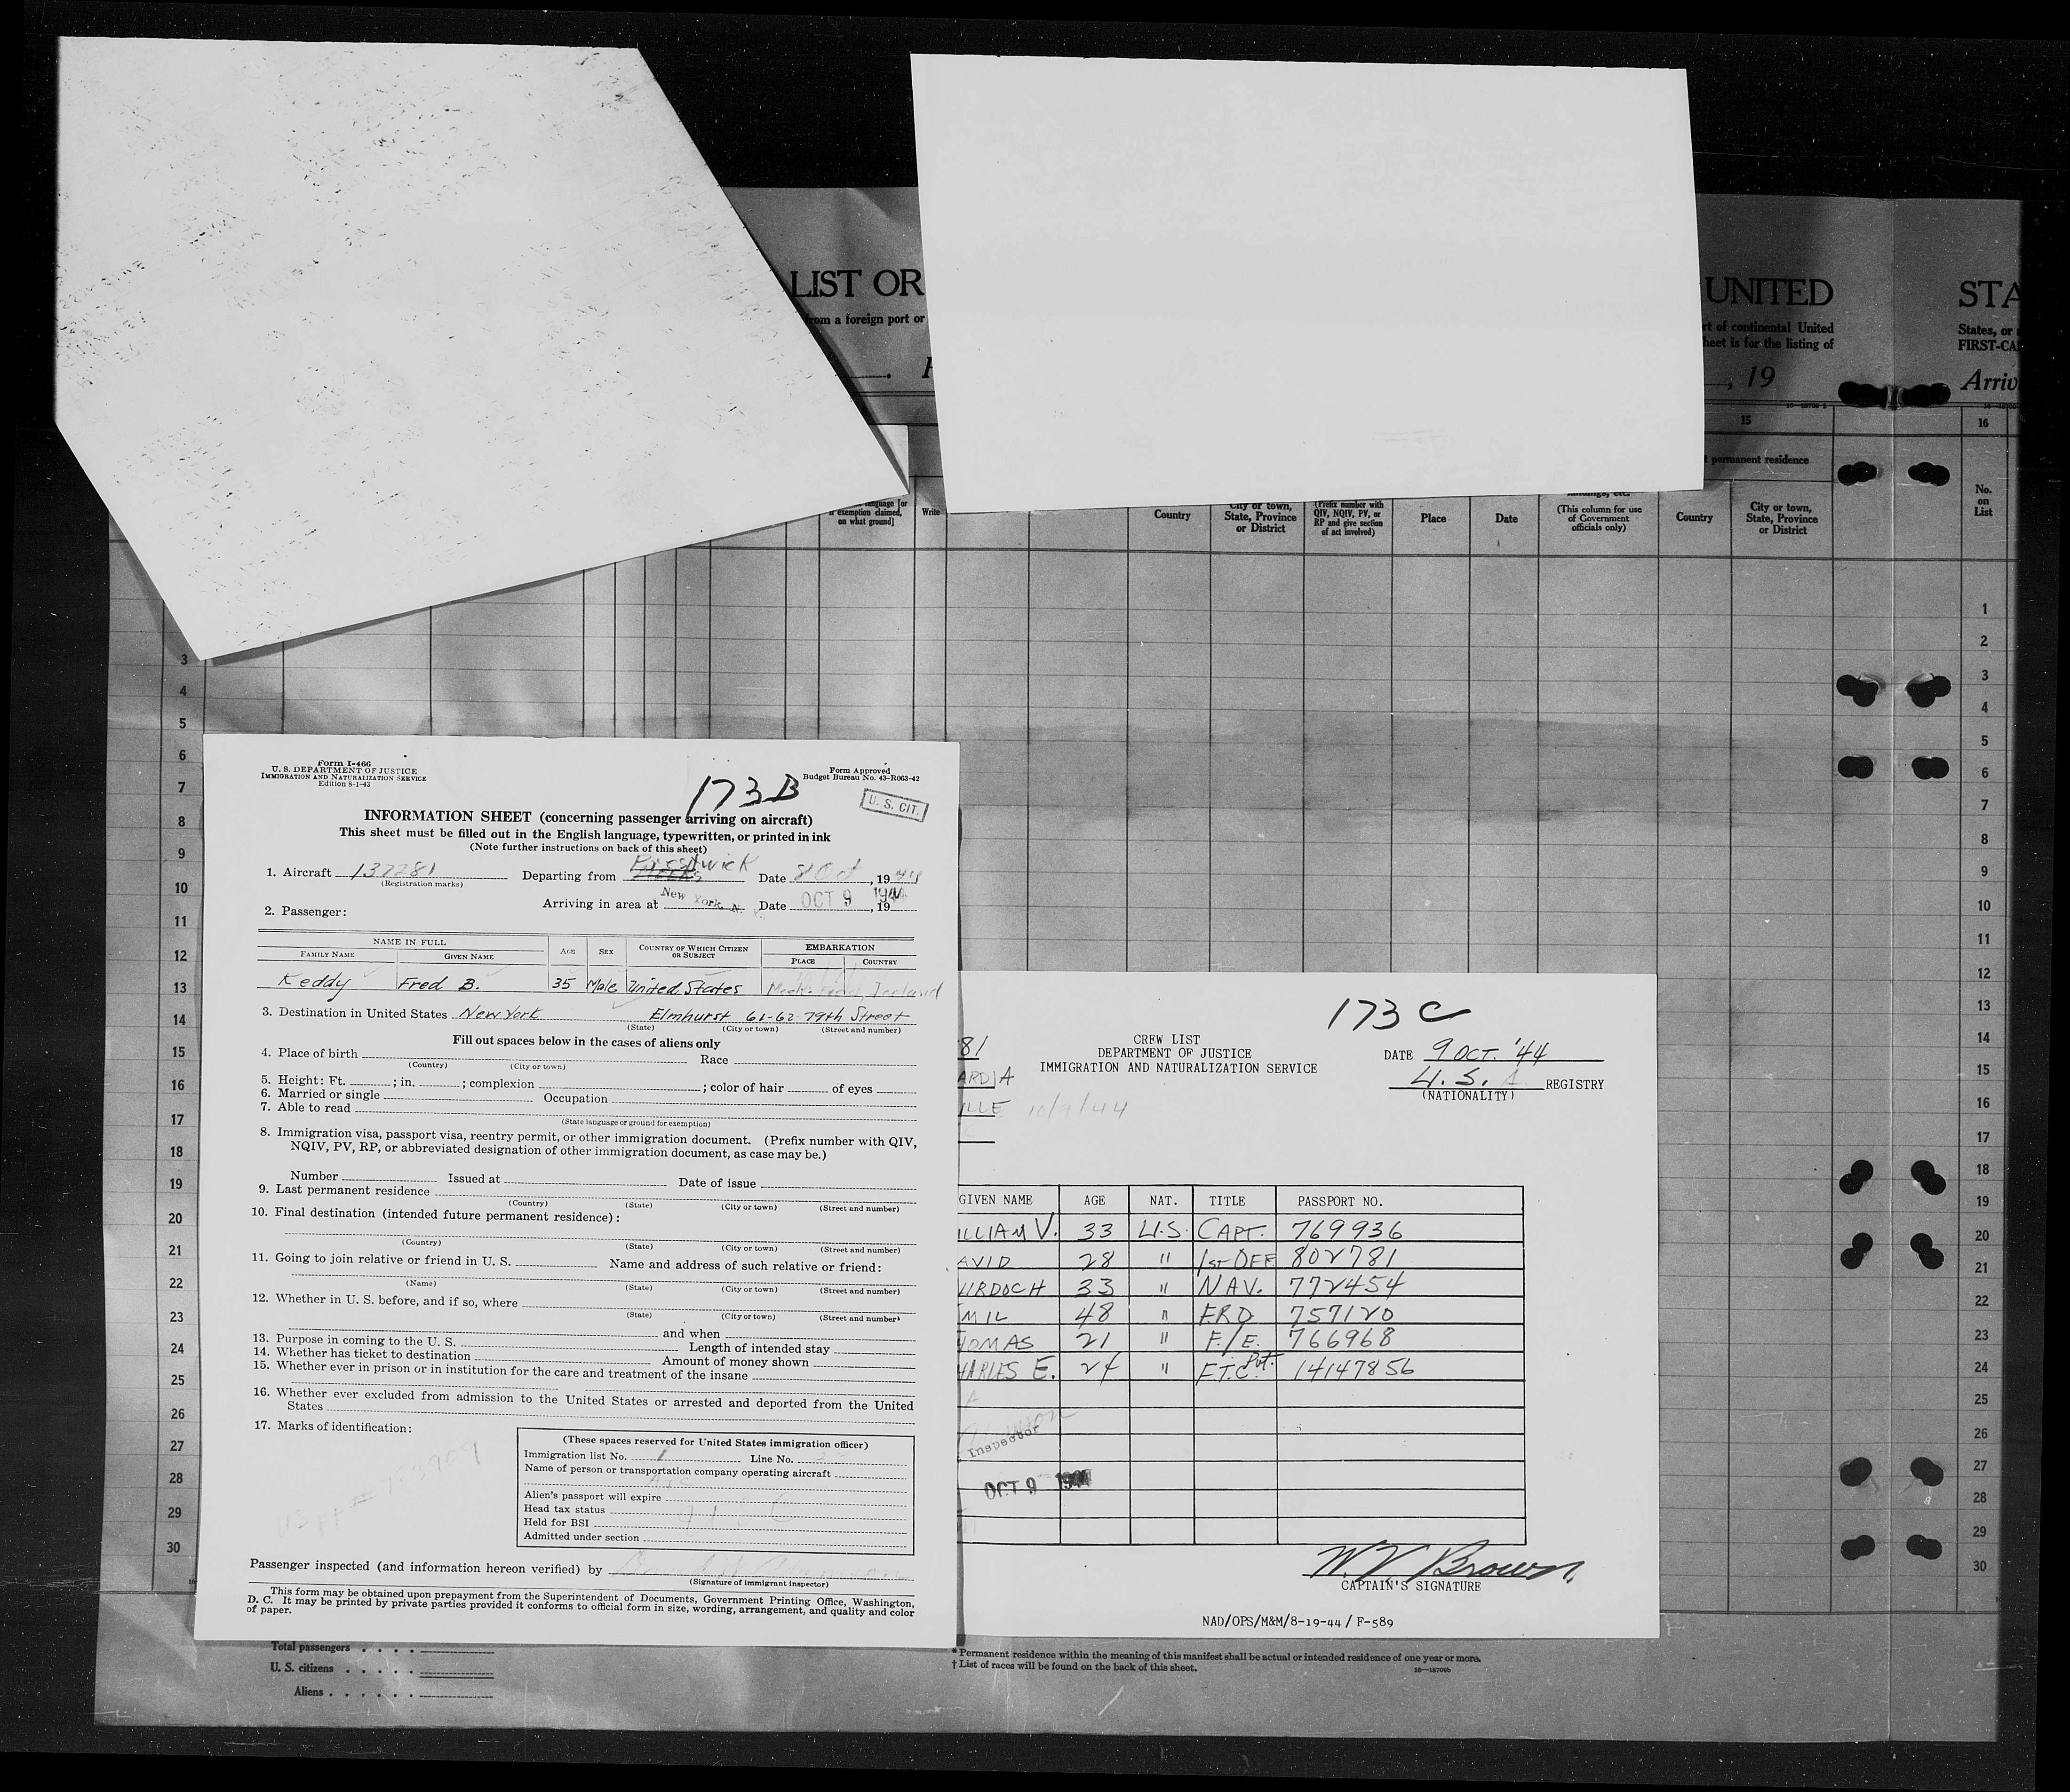 LIST OR
UNITED
STA
from a foreign port or
rt of continental United
States, or
heet is for the listing of
FIRST-CA
, 19
Arriv
15
16
permanent residence
language [or
if exemption claimed,
on what ground]
Write
Country
City or town,
State, Province
or District
(Prefix number with
QIV, NQIV, PV, or
RP and give section
of act involved)
Place
Date
(This column for use
of Government
officials only)
Country
City or town,
State, Province
or District
No.
on
List
1
2
3
4
5
6
7
8
9
10
11
12
13
14
15
16
17
18
19
20
21
22
23
24
25
26
27
28
29
30
3
4
5
6
7
8
9
10
11
12
13
14
15
16
17
18
19
20
21
22
23
24
25
26
27
28
29
30
Form I-466
U. S. DEPARTMENT OF JUSTICE
IMMIGRATION AND NATURALIZATION SERVICE
Edition 8-1-43
173B
Form Approved
Budget Bureau No. 43-R063-42
U. S. CIT.
INFORMATION SHEET (concerning passenger arriving on aircraft)
This sheet must be filled out in the English language, typewritten, or printed in ink
(Note further instructions on back of this sheet)
1. Aircraft 137281 Departing from Prestwick Date 8 Oct, 1944
(Registration marks)
Arriving in area at New York, N. Date OCT 9 1944, 19
2. Passenger:
NAME IN FULL
FAMILY NAME GIVEN NAME AGE SEX COUNTRY OF WHICH CITIZEN OR SUBJECT EMBARKATION
PLACE COUNTRY
Keddy Fred B. 35 Male United States Meeks Field, Iceland
3. Destination in United States New York Elmhurst 61-62 79th Street
(State) (City or town) (Street and number)
Fill out spaces below in the cases of aliens only
4. Place of birth Race
(Country) (City or town)
5. Height: Ft. ; in. ; complexion ; color of hair of eyes
6. Married or single Occupation
7. Able to read
(State language or ground for exemption)
8. Immigration visa, passport visa, reentry permit, or other immigration document. (Prefix number with QIV,
NQIV, PV, RP, or abbreviated designation of other immigration document, as case may be.)
Number Issued at Date of issue
9. Last permanent residence
(Country) (State) (City or town) (Street and number)
10. Final destination (intended future permanent residence):
(Country) (State) (City or town) (Street and number)
11. Going to join relative or friend in U. S. Name and address of such relative or friend:
(Name) (State) (City or town) (Street and number)
12. Whether in U. S. before, and if so, where
(State) (City or town) (Street and number)
and when
13. Purpose in coming to the U. S. Length of intended stay
14. Whether has ticket to destination Amount of money shown
15. Whether ever in prison or in institution for the care and treatment of the insane
16. Whether ever excluded from admission to the United States or arrested and deported from the United
States
17. Marks of identification:
(These spaces reserved for United States immigration officer)
Immigration list No. 1 Line No.
Name of person or transportation company operating aircraft
Alien's passport will expire
Head tax status
Held for BSI
Admitted under section
Passenger inspected (and information hereon verified) by
(Signature of immigrant inspector)
This form may be obtained upon prepayment from the Superintendent of Documents, Government Printing Office, Washington,
D. C. It may be printed by private parties provided it conforms to official form in size, wording, arrangement, and quality and color
of paper.
173C
81
CREW LIST
DEPARTMENT OF JUSTICE
IMMIGRATION AND NATURALIZATION SERVICE
DATE 9 OCT. '44
U. S. A REGISTRY
(NATIONALITY)
ARDIA
ILLE 10/9/44
GIVEN NAME AGE NAT. TITLE PASSPORT NO.
ILLIAM V. 33 U.S. CAPT. 769936
AVID 28 " 1ST OFF 802781
URDOCH 33 " NAV. 772454
MIL 48 " FRO 757120
HOMAS 21 " F./E. 766968
HARLES E. 24 " F.T.C. Pvt. 14147856
Inspector
OCT 9 1944
W. V. Brown
CAPTAIN'S SIGNATURE
NAD/OPS/M&M/8-19-44 / F-589
Total passengers
U. S. citizens
Aliens
* Permanent residence within the meaning of this manifest shall be actual or intended residence of one year or more.
† List of races will be found on the back of this sheet.
16—18700b